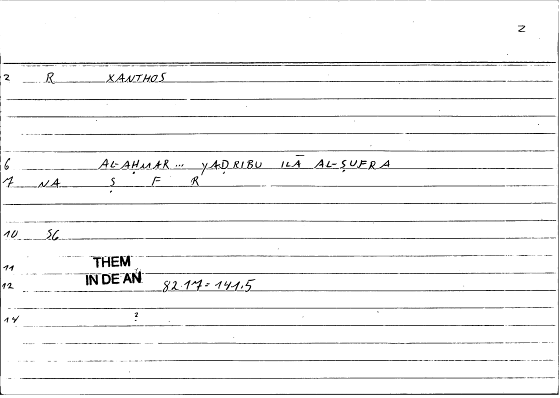 2
2 R XANTHOS
6 AL-AḤMAR... YAḌRIBU ILĀ AL-ṢUFRA
7 NA Ṣ F R
10 SG
11 THEM
IN DE AN
12 82.17 = 141.5
14 ?